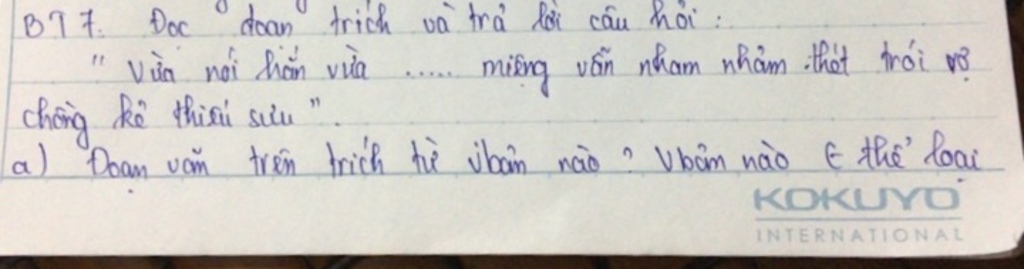 BT 7. Đọc đoạn trích và trả lời câu hỏi:
" Vừa nói hắn vừa ..... miệng vẫn nham nhảm thét trói vợ
chồng kẻ thiếu sưu".
a) Đoạn văn trên trích từ vbản nào? Vbản nào ∈ thể loại
KOKUYO
INTERNATIONAL